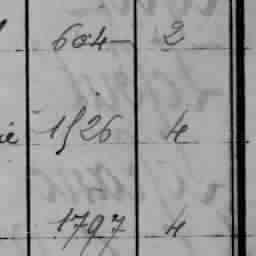 604 2
1526 4
1797 4